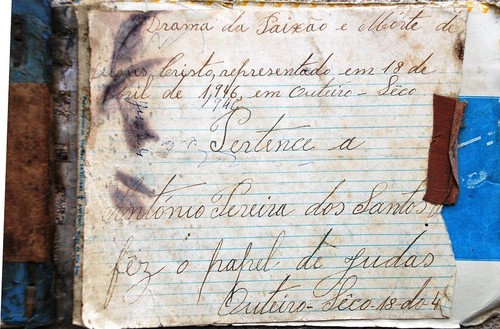 Drama da Paixão e Morte de
Cristo, representado em 18 de
de 1,946, em Outeiro-Sêco
1946
Pertence a
António Pereira dos Santos
fêz o papel de Judas
Outeiro-Sêco-18-do 4